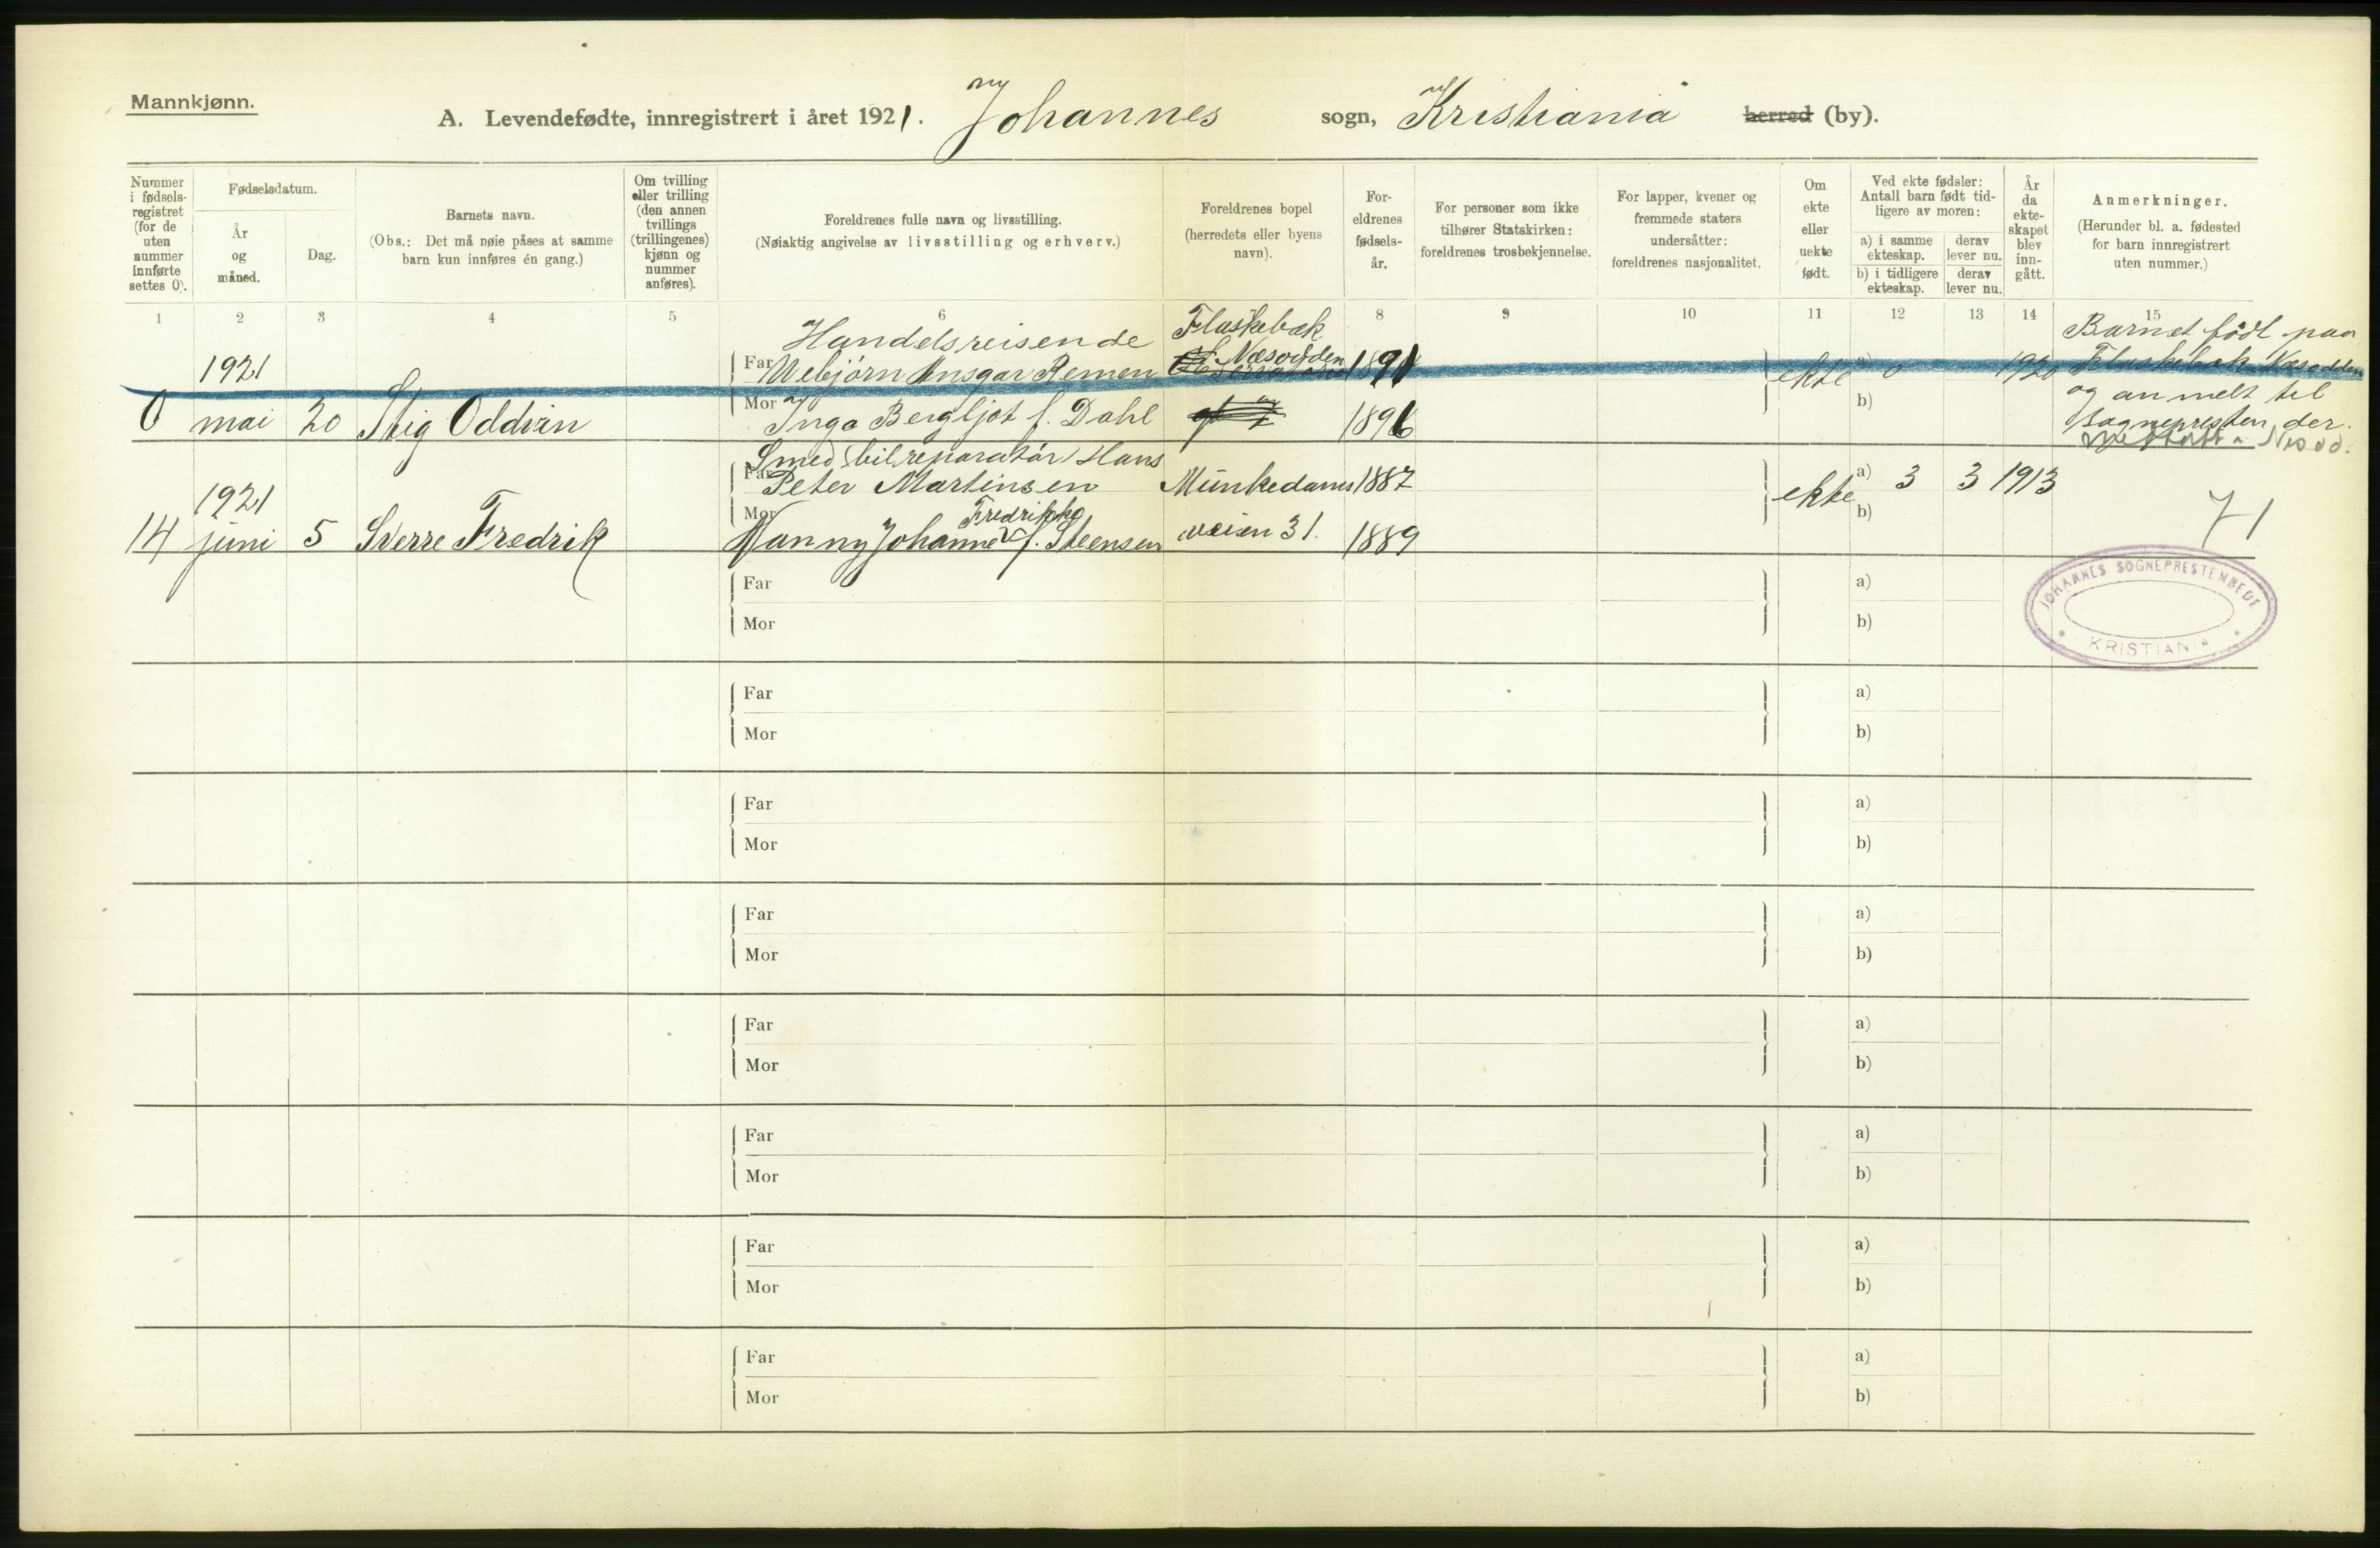 Mannkjønn.
A. Levendefødte, innregistrert i året 1921. Johannes sogn, Kristiania herred (by).
Nummer i fødsels-registret (for de uten nummer innførte settes 0).
Fødselsdatum.
År og måned.
Dag.
Barnets navn.
(Obs.: Det må nøie påses at samme barn kun innføres én gang.)
Om tvilling eller trilling (den annen tvillings (trillingenes) kjønn og nummer anføres).
Foreldrenes fulle navn og livsstilling.
(Nøiaktig angivelse av livsstilling og erhverv.)
Foreldrenes bopel (herredets eller byens navn).
For-eldrenes fødsels-år.
For personer som ikke tilhører Statskirken: foreldrenes trosbekjennelse.
For lapper, kvener og fremmede staters undersåtter: foreldrenes nasjonalitet.
Om ekte eller uekte født.
Ved ekte fødsler: Antall barn født tid-ligere av moren:
a) i samme ekteskap.
derav lever nu.
b) i tidligere ekteskap.
derav lever nu.
År da ekte-skapet blev inn-gått.
Anmerkninger.
(Herunder bl. a. fødested for barn innregistrert uten nummer.)
1 2 3 4 5 6 8 9 10 11 12 13 14 15
Handelsreisende Flaskebæk Barnet født paa
1921 Far Webjørn Ansgar Remen Næsodden 1891 ekte a) 0 1920 Flaskebæk Næsodden
0 mai 20 Stig Oddvin Mor Inga Bergljot f. Dahl 1896 b) og anmelt til
Sognepresten der.
Smed (bilreparatør) Hans
1921 Far Peter Martinsen Munkedams 1887 ekte a) 3 3 1913
14 juni 5 Sverre Fredrik Mor Nanny Johanne Fredrikke f. Steensen veien 31. 1889 b)
71
JOHANNES SOGNEPRESTEMBEDE
KRISTIANIA
Far a)
Mor b)
Far a)
Mor b)
Far a)
Mor b)
Far a)
Mor b)
Far a)
Mor b)
Far a)
Mor b)
Far a)
Mor b)
Far a)
Mor b)